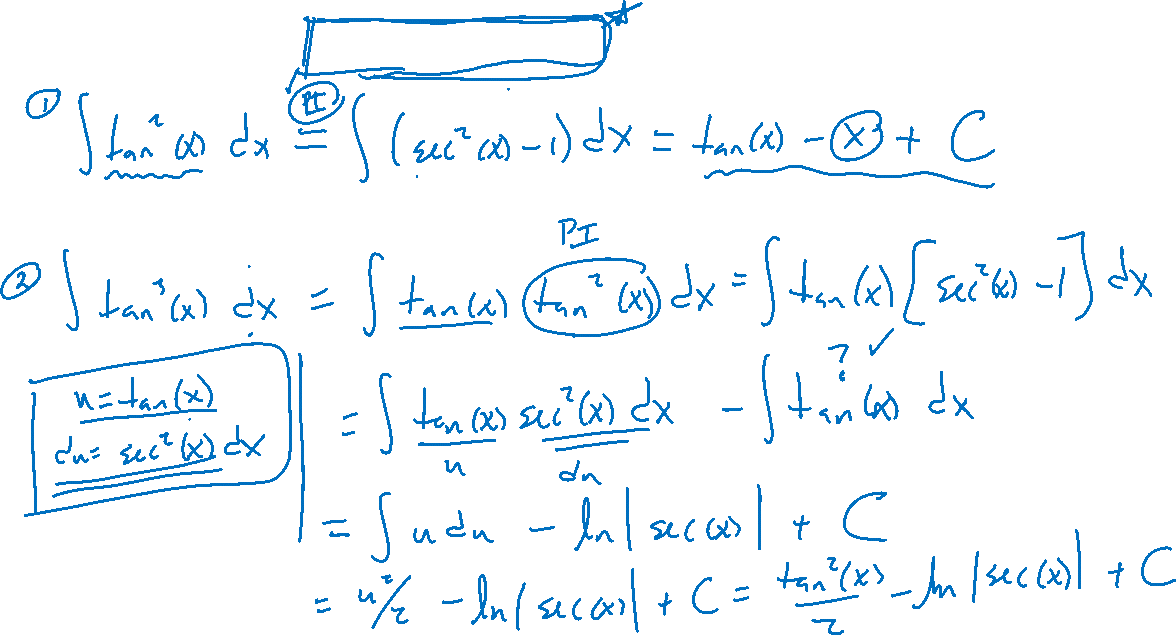 ① ∫ tan²(x) dx =(PI) ∫ (sec²(x) - 1) dx = tan(x) - x + C
PI
② ∫ tan³(x) dx = ∫ tan(x) tan²(x) dx = ∫ tan(x) [sec²(x) - 1] dx
? ✓
u = tan(x)
du = sec²(x) dx
= ∫ tan(x) sec²(x) dx - ∫ tan(x) dx
u du
= ∫ u du - ln|sec(x)| + C
= u²/2 - ln|sec(x)| + C = tan²(x)/2 - ln|sec(x)| + C